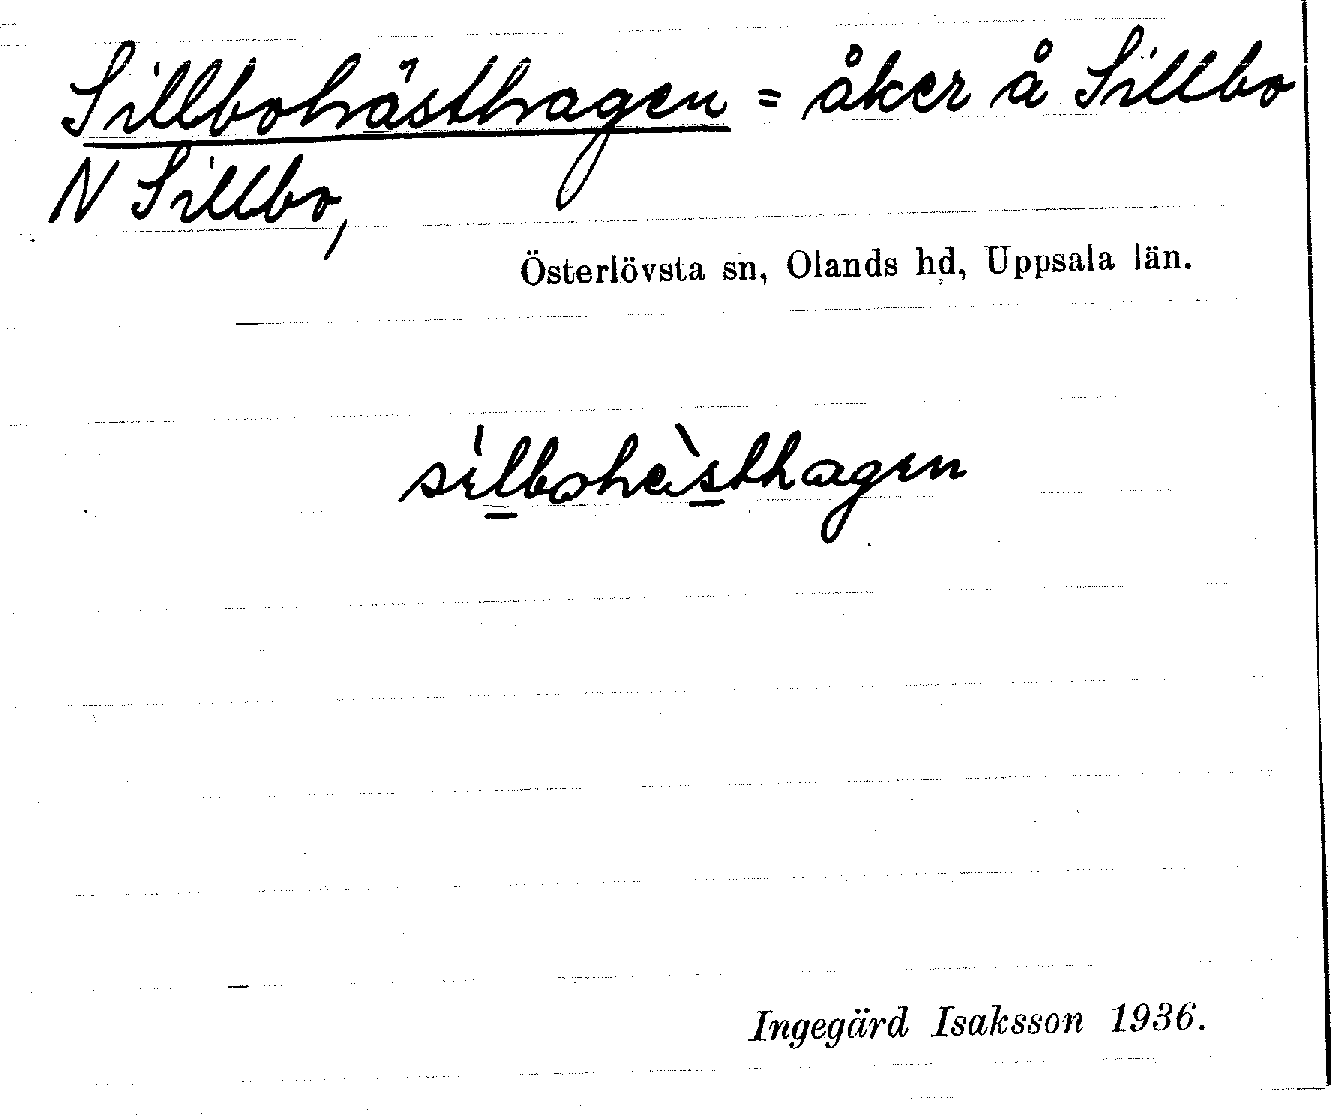 Sillbohästhagen = åker å Sillbo
N Sillbo,
Österlövsta sn, Olands hd, Uppsala län.
sìlbohèsthagen
Ingegärd Isaksson 1936.